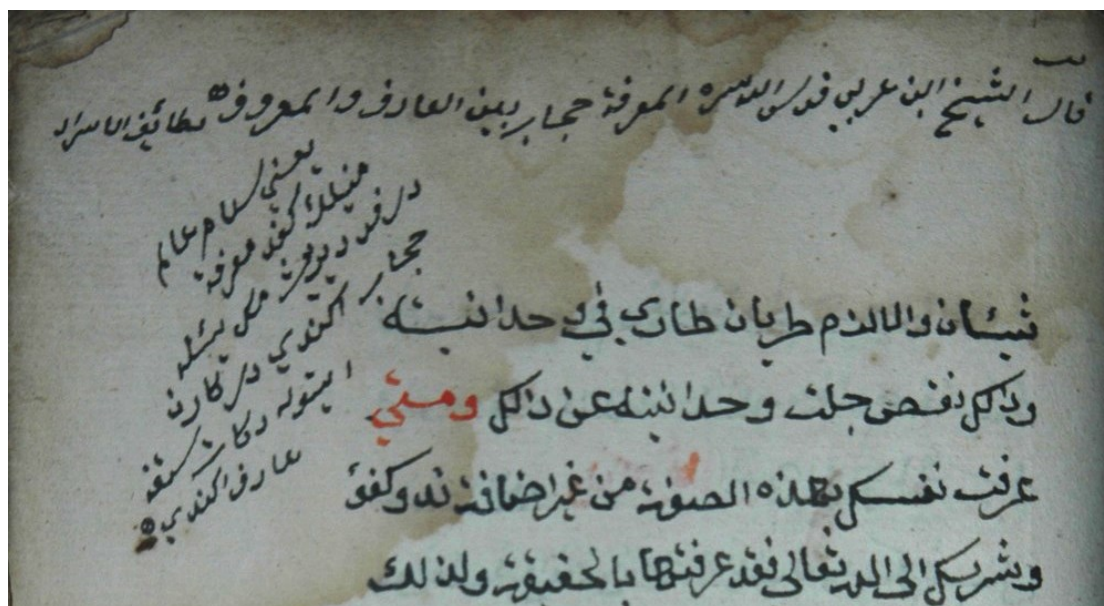 قال الشيخ ابن عربي قدس الله سره المعرفة حجاب بين العارف والمعروف لطائف الاسرار
يعني سلام عالم
كفد معرفة
در فد
حجاب اكندي در
عارف اكندي
شيئان والا لزم طريان طاري في وحدانيته
وذالك نقص جلت وحدانيته عن ذالك ومتي
عرفت نفسك بهذه الصفة من غير اضافة ند وكفؤ
وشريك الى الله تعالى فقد عرفتها بالحقيقة ولذلك